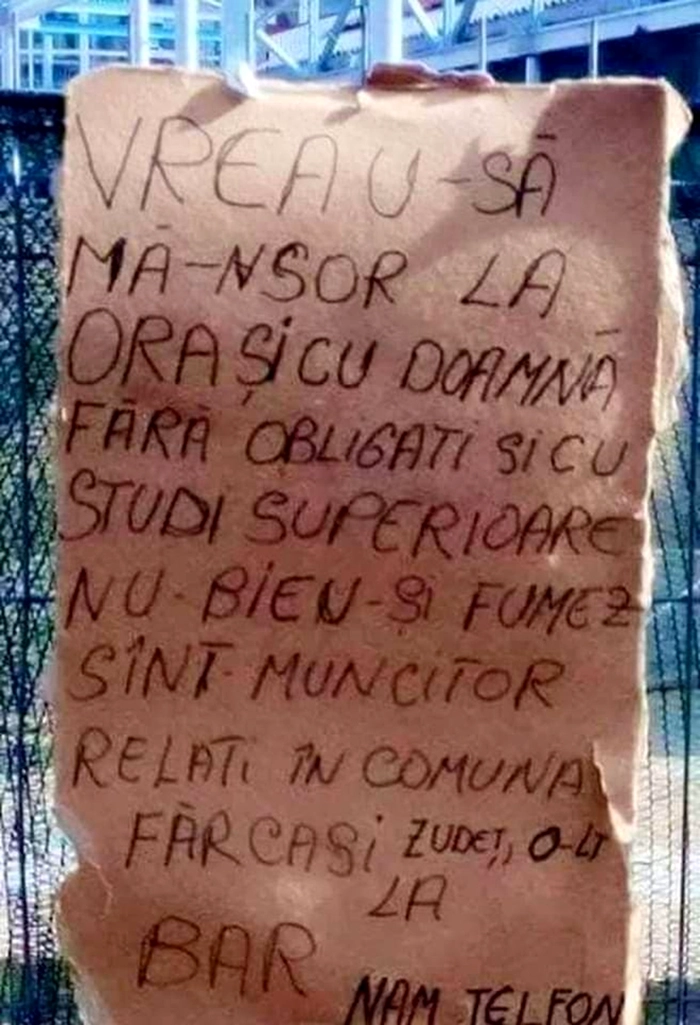 VREAU-SĂ
MĂ-NSOR LA
ORAȘiCU DOAMNĂ
FĂRĂ OBLiGATi SiCU
STUDi SUPERIOARE
NU-BiEU-Și FUMEZ
SÎNT-MUNCiTOR
RELATi ÎN COMUNA
FĂRCAȘi ZUDEȚ, O-LT
LA
BAR
NAM TELFON